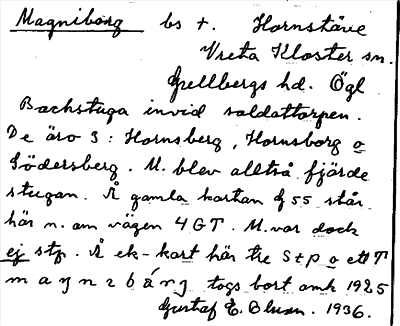 Magniborg bs t. Hornstäve
Vreta Kloster sn.
Gullbergs hd. Ögl
Backstuga invid soldattorpen.
De äro 3: Hornsberg, Hornsborg o
Södersberg. M. blev alltså fjärde
stugan. Å gamla kartan f 55 står
här n. om vägen 4 GT. M. var dock
ej stp. Å ek-kart här tre Stp o ett T
togs bort omk 1925
Gustaf E. Olsson. 1936.